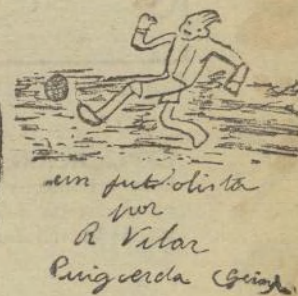 un futbolista
por
R Vilar
Puigcerda (Gerona)